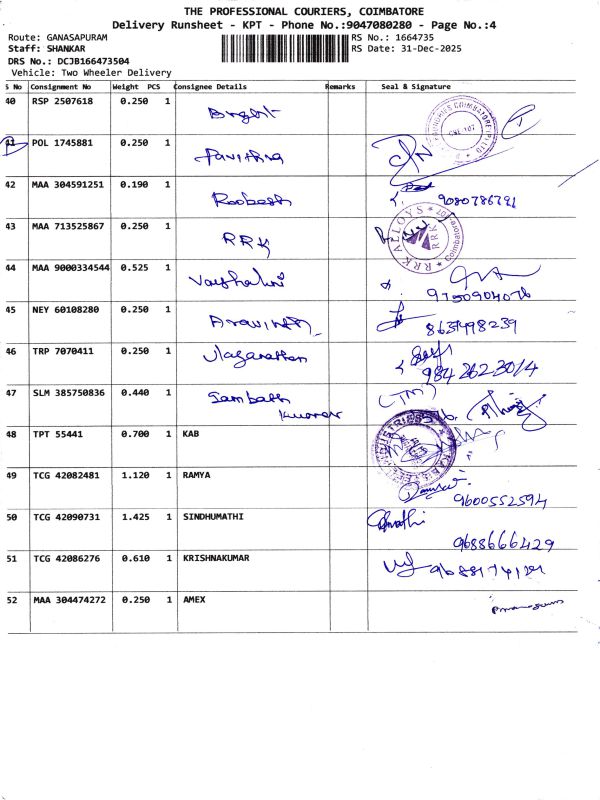 THE PROFESSIONAL COURIERS, COIMBATORE
Delivery Runsheet - KPT - Phone No.:9047080280 - Page No.:4
Route: GANASAPURAM RS No.: 1664735
Staff: SHANKAR RS Date: 31-Dec-2025
DRS No.: DCJB166473504
Vehicle: Two Wheeler Delivery
S No Consignment No Weight PCS Consignee Details Remarks Seal & Signature
40 RSP 2507618 0.250 1 Bright
41 POL 1745881 0.250 1 Pavithra
42 MAA 304591251 0.190 1 Roobesh
9080786791
43 MAA 713525867 0.250 1 RRK RRK ALLOYS RRK
44 MAA 9000334544 0.525 1 Vayshalini
9750904076
45 NEY 60108280 0.250 1 Aravinth
8637498239
46 TRP 7070411 0.250 1
9842623014
47 SLM 385750836 0.440 1 Sambath
Kumar
48 TPT 55441 0.700 1 KAB
49 TCG 42082481 1.120 1 RAMYA
9600552594
50 TCG 42090731 1.425 1 SINDHUMATHI
9688666429
51 TCG 42086276 0.610 1 KRISHNAKUMAR
52 MAA 304474272 0.250 1 AMEX